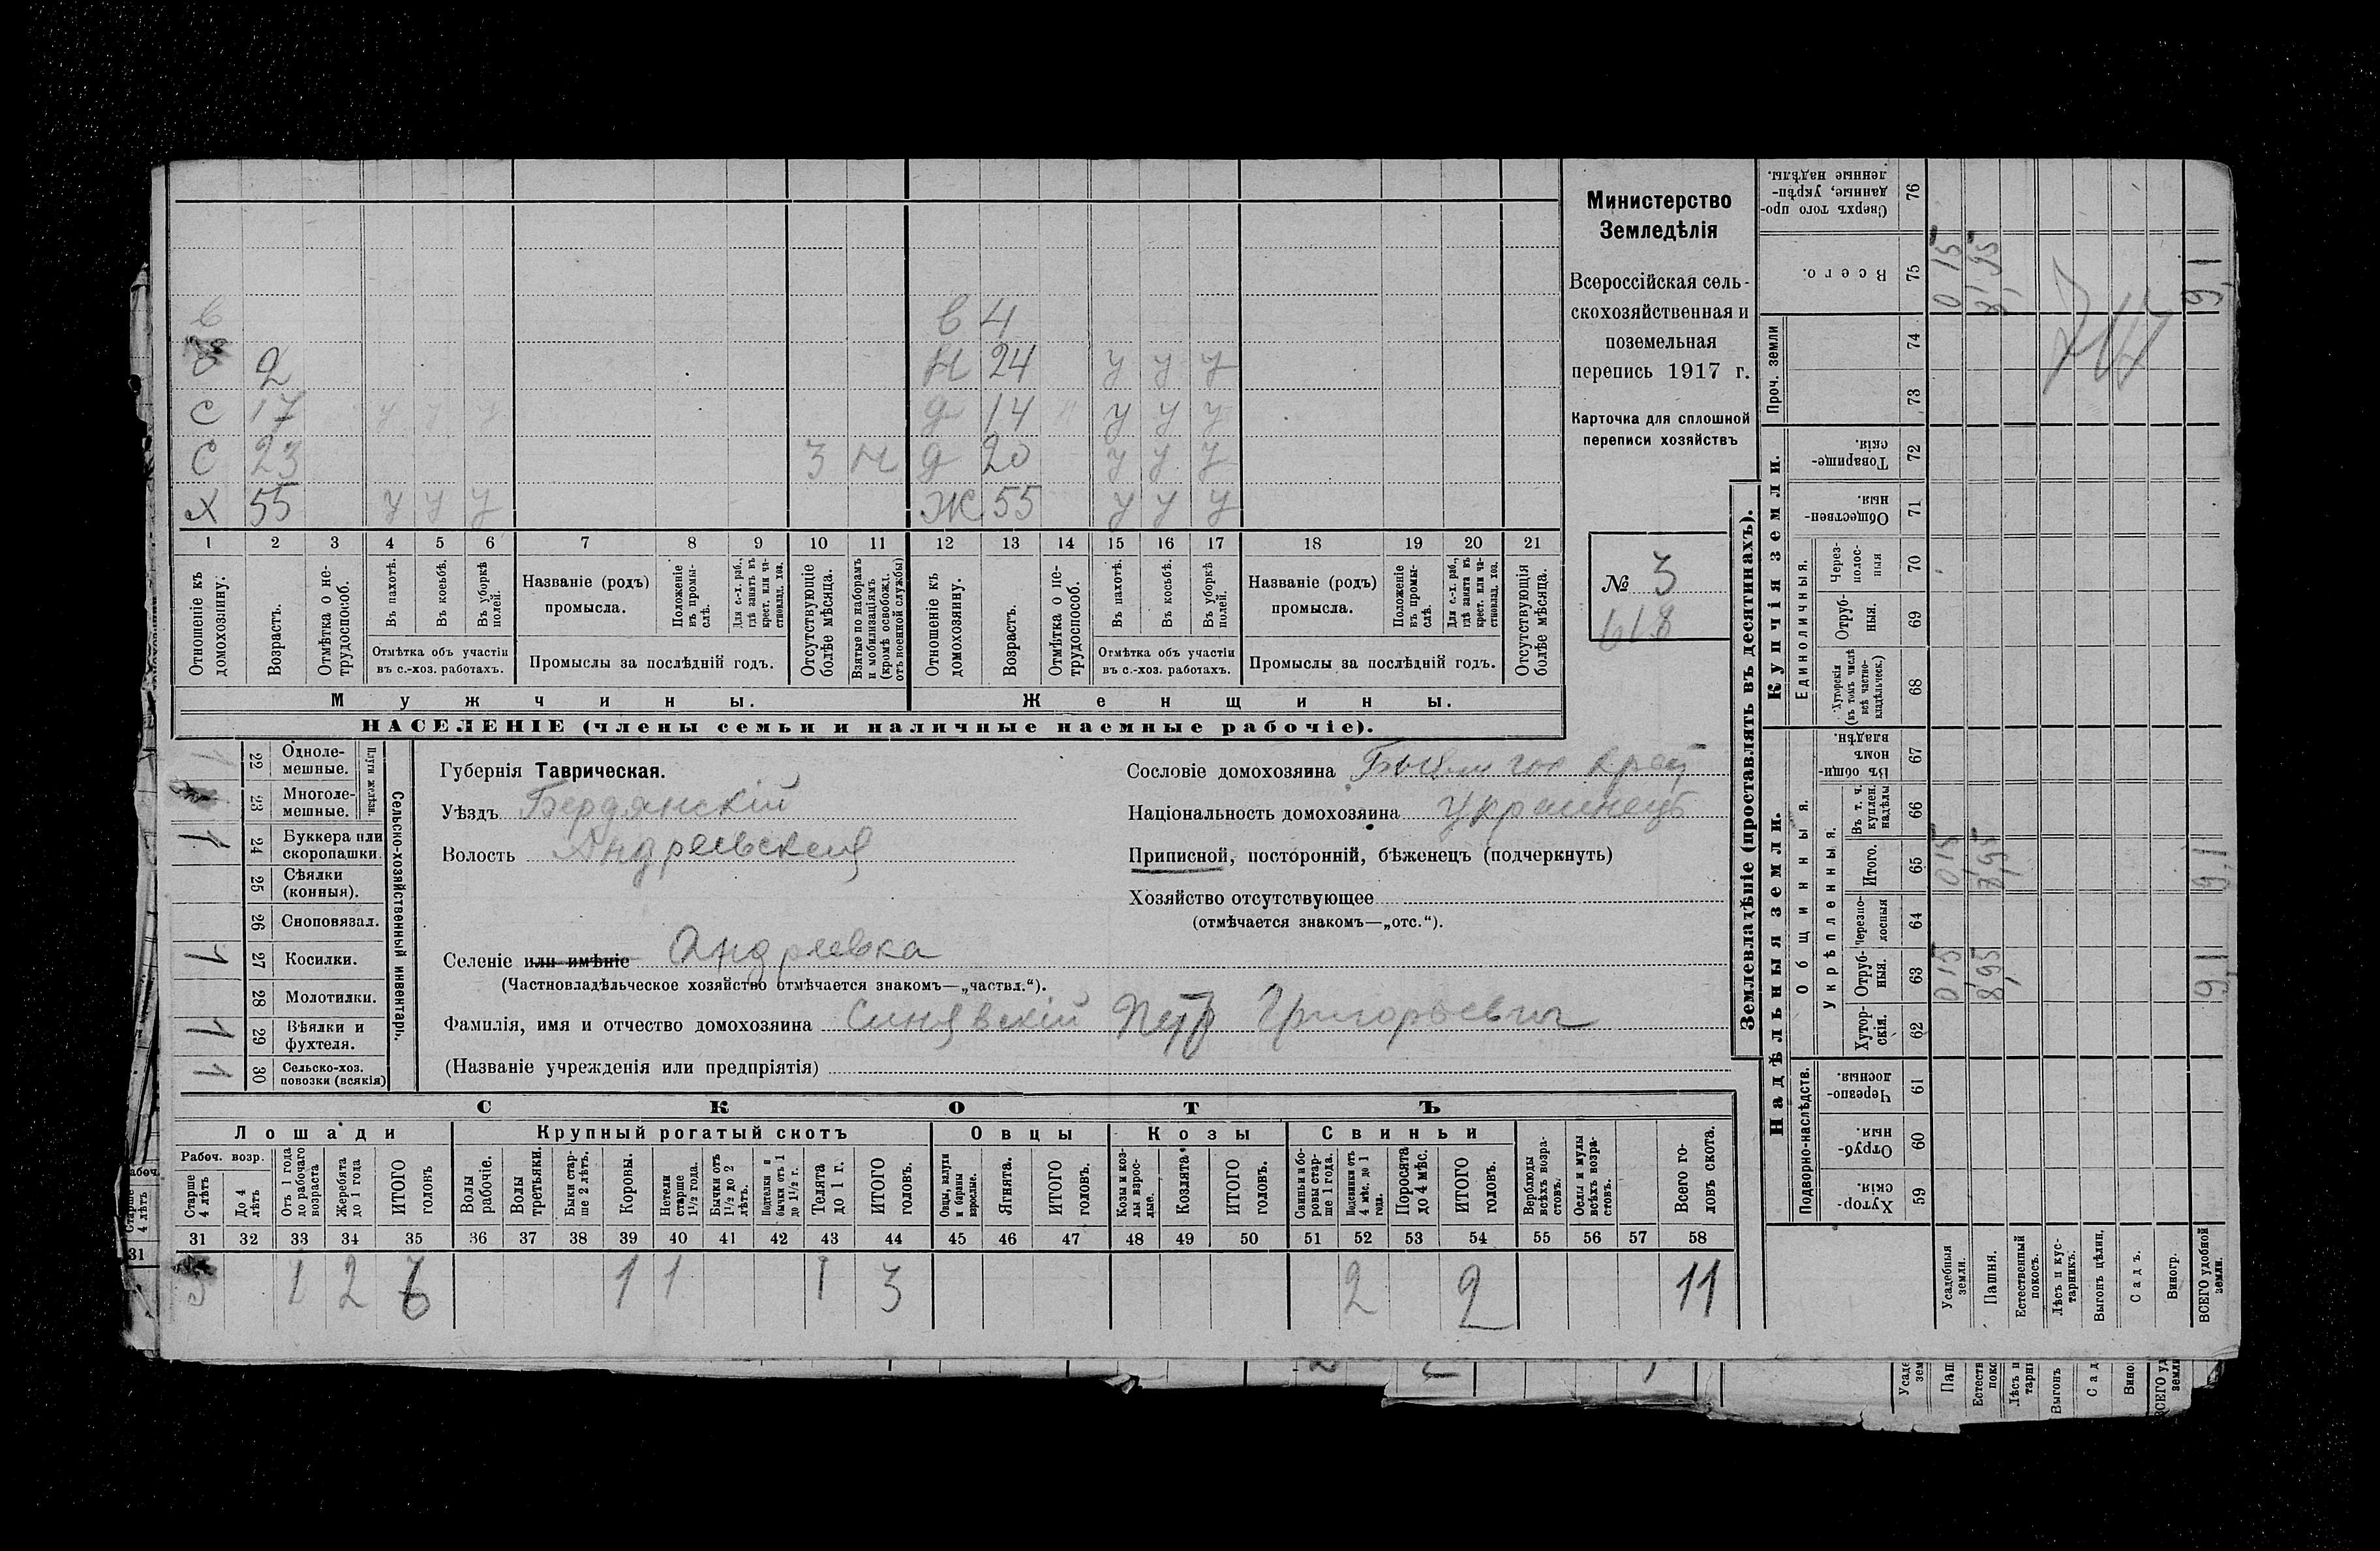 в в 4
2 н 24 у у у
с 17 у у у д 14 н у у у
с 23 3 н д 20 у у у
х 55 у у у ж 55 у у у
1 2 3 4 5 6 7 8 9 10 11 12 13 14 15 16 17 18 19 20 21
Отношеніе къ домохозяину.
Возрастъ.
Отмѣтка о нетрудоспособ.
Въ пахотѣ.
Въ косьбѣ.
Въ уборкѣ полей.
Отмѣтка объ участіи
въ с.-хоз. работахъ.
Названіе (родъ)
промысла.
Положеніе въ промыслѣ.
Для с.-х. раб., гдѣ занятъ въ крест. или частновлад. хоз.
Промыслы за послѣдній годъ.
Отсутствующіе болѣе мѣсяца.
Взятые по наборамъ и мобилизаціямъ (кромѣ освобожд. отъ военной службы)
Отношеніе къ домохозяину.
Возрастъ.
Отмѣтка о нетрудоспособ.
Въ пахотѣ.
Въ косьбѣ.
Въ уборкѣ полей.
Отмѣтка объ участіи
въ с.-хоз. работахъ.
Названіе (родъ)
промысла.
Положеніе въ промыслѣ.
Для с.-х. раб., гдѣ занята въ крест. или частновлад. хоз.
Промыслы за послѣдній годъ.
Отсутствующія болѣе мѣсяца.
Мужчины.
Женщины.
НАСЕЛЕНІЕ (члены семьи и наличные наемные рабочіе).
Министерство
Земледѣлія
Всероссійская сель-
скохозяйственная и
поземельная
перепись 1917 г.
Карточка для сплошной
переписи хозяйствъ
№ 3
618
Сельско-хозяйственный инвентарь.
Плуги желѣзн.
1 22 Одноле-
мешные.
23 Многоле-
мешные.
1 24 Буккера или
скоропашки.
25 Сѣялки
(конныя).
26 Сноповязал.
1 27 Косилки.
28 Молотилки.
1 29 Вѣялки и
фухтеля.
1 30 Сельско-хоз.
повозки (всякія)
Губернія Таврическая.
Уѣздъ Бердянскій
Волость Андреевская
Селеніе или имѣніе Андреевка
(Частновладѣльческое хозяйство отмѣчается знакомъ—„частвл.“).
Фамилія, имя и отчество домохозяина Синявскій Петр Григорьевич
(Названіе учрежденія или предпріятія)
Сословіе домохозяина
Національность домохозяина Украинецъ
Приписной, посторонній, бѣженецъ (подчеркнуть)
Хозяйство отсутствующее
(отмѣчается знакомъ—„отс.“).
СКОТЪ
Лошади
Рабоч. возр.
Старше 4 лѣтъ
До 4 лѣтъ
Отъ 1 года до рабочаго возраста
Жеребята до 1 года
ИТОГО головъ
Крупный рогатый скотъ
Волы рабочіе.
Волы третьяки.
Быки старше 2 лѣтъ.
Коровы.
Нетели старше 1½ года.
Бычки отъ 1½ до 2 лѣтъ.
Подтелки и бычки отъ 1 до 1½ г.
Телята до 1 г.
ИТОГО головъ.
Овцы
Овцы, валухи и бараны взрослые.
Ягнята.
ИТОГО головъ.
Козы
Козы и козлы взрослые.
Козлята
ИТОГО головъ.
Свиньи
Свиньи и боровы старше 1 года.
Подсвинки отъ 4 мѣс. до 1 года.
Поросята до 4 мѣс.
ИТОГО головъ.
Верблюды всѣхъ возрастовъ.
Ослы и мулы всѣхъ возрастовъ.
Всего головъ скота.
31 32 33 34 35 36 37 38 39 40 41 42 43 44 45 46 47 48 49 50 51 52 53 54 55 56 57 58
3 1 2 6 1 1 1 3 2 2 11
Землевладѣніе (проставлять въ десятинахъ).
Купчія земли.
Надѣльныя земли.
Сверхъ того проданные, укрѣпленные надѣлы. 76
Всего. 75 0,15 8,95 9,1
Проч. земли 74 73
Товарищескія. 72
Общественныя 71
Единоличныя.
Черезполосныя 70
Отрубныя. 69
Хуторскія (въ томъ числѣ всѣ частновладѣльческ.) 68
Общинныя.
Въ общинномъ владѣн. 67
Укрѣпленныя.
Въ т. ч. куплен. надѣлы 66
Итого. 65 0,15 8,95 9,1
Черезполосныя 64
Отрубныя. 63 0,15 8,95 9,1
Хуторскія. 62
Подворно-наслѣдств.
Черезполосныя. 61
Отрубныя. 60
Хуторскія. 59
Усадебныя земли.
Пашня.
Естественный покосъ.
Лѣсъ и кустарникъ.
Выгонъ цѣлин.
Садъ.
Виногр.
ВСЕГО удобной земли.
Старше
4 лѣтъ
31